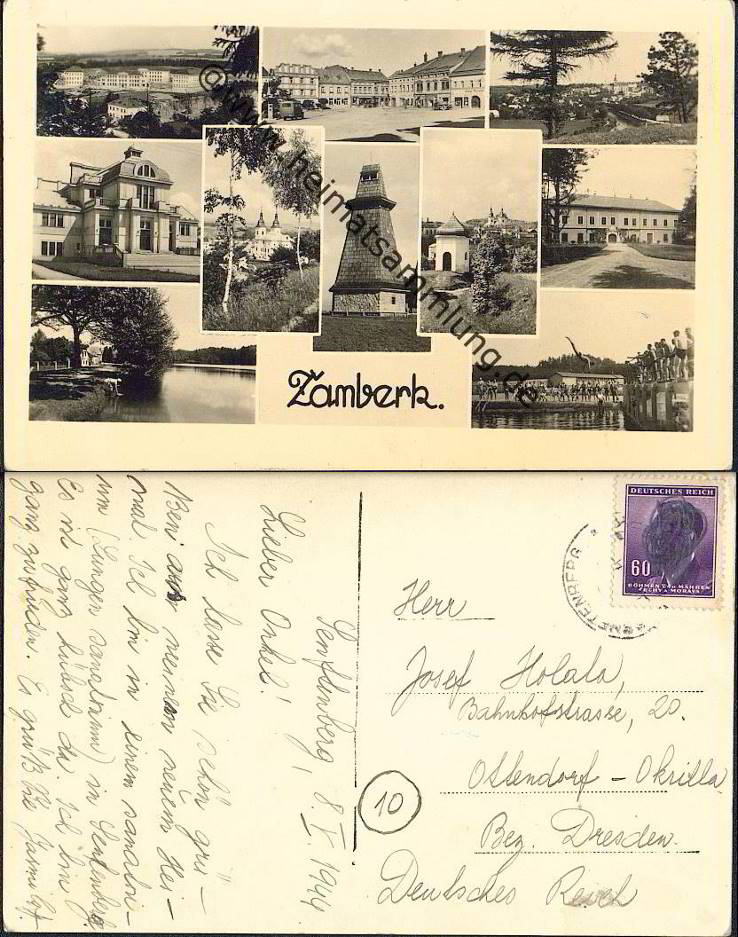 © www.heimatsammlung.de
Žamberk.
Senftenberg, 8. V. 1944.
Lieber Onkel!
Ich lasse Sie schön grü-
Ben aus meinem neuem Hei-
mat. Ich bin in einem sanatori-
um (Lungen sanatorium) in Senftenberg
Es ist ganz hübsch da. Ich bin
ganz zufrieden. Es grüßt Sie
DEUTSCHES REICH
60
BÖHMEN U. MÄHREN
ČECHY A MORAVA
Herr
Josef Holala,
Bahnhofstrasse, 20.
Ottendorf - Okrilla
Bez. Dresden.
Deutsches Reich
10